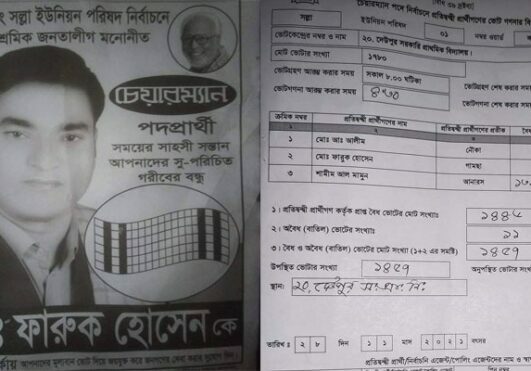 সল্লা ইউনিয়ন পরিষদ নির্বাচনে
শ্রমিক জনতালীগ মনোনীত
চেয়ারম্যান
পদপ্রার্থী
সময়ের সাহসী সন্তান
আপনাদের সু-পরিচিত
গরীবের বন্ধু
ফারুক হোসেন কে
আপনাদের মূল্যবান ভোট দিয়ে জয়যুক্ত করে জনগণের সেবা করার সুযোগ দিন।
চেয়ারম্যান পদে নির্বাচনে প্রতিদ্বন্দ্বী প্রার্থীগণের ভোট গণনার
সল্লা ইউনিয়ন পরিষদ ০১ নম্বর ওয়ার্ড
ভোটকেন্দ্রের নম্বর ও নাম ২০. দেউপুর সরকারি প্রাথমিক বিদ্যালয়।
মোট ভোটার সংখ্যা ১৭৮০
ভোটগ্রহণ আরম্ভ করার সময় সকাল ৮.০০ ঘটিকা ভোটগ্রহণ শেষ করার সময়
ভোটগণনা আরম্ভ করার সময় ভোটগণনা শেষ করার
ক্রমিক নম্বর প্রতিদ্বন্দ্বী প্রার্থীগণের নাম প্রতিদ্বন্দ্বী প্রার্থীগণের প্রতীক
১ ২
১ মোঃ আঃ আলীম নৌকা
২ মোঃ ফারুক হোসেন গামছা
৩ শামীম আল মামুন আনারস
১। প্রতিদ্বন্দ্বী প্রার্থীগণ কর্তৃক প্রাপ্ত বৈধ ভোটের মোট সংখ্যাঃ
২। অবৈধ (বাতিল) ভোটের মোট সংখ্যাঃ ১১
৩। বৈধ ও অবৈধ (বাতিল) ভোটের মোট সংখ্যা (১+২ এর সমষ্টি)
উপস্থিত ভোটার সংখ্যা অনুপস্থিত ভোটার সংখ্যা
স্থান: ২০, দেউপুর
তারিখ ঃ ২ ৮ দিন ১ ১ মাস ২ ০ ২ ১ বৎসর
প্রতিদ্বন্দ্বী প্রার্থী/নির্বাচনি এজেন্ট/পোলিং এজেন্টদের নাম ও